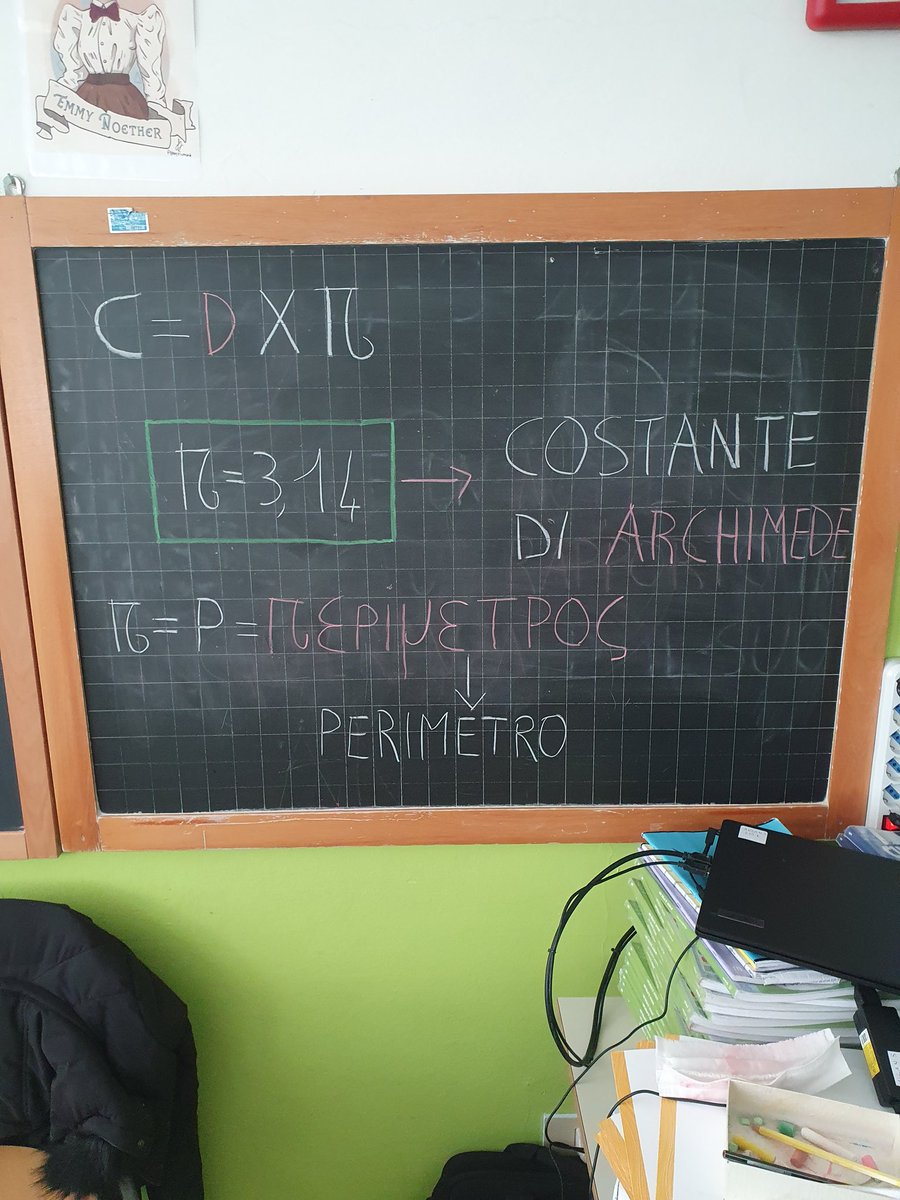 EMMY NOETHER
C = D X π
π = 3,14 → COSTANTE
DI ARCHIMEDE
π = P = ΠΕΡΙμΕΤΡΟς
↓
PERIMETRO